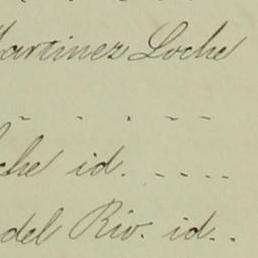 Martinez Loche
- . . - -
che id. - - - - -
del Riv. id. .